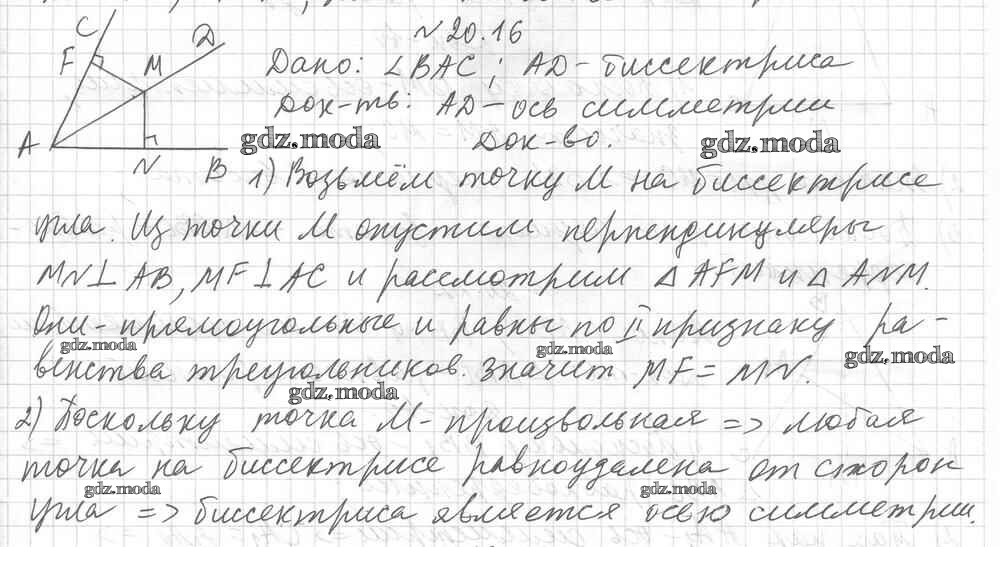 № 20.16
C
D
F
M
A
N
B
Дано: ∠BAC; AD - биссектриса
Док-ть: AD - ось симметрии
Док-во.
gdz.moda
gdz.moda
1) Возьмём точку M на биссектрисе
угла. Из точки M опустим перпендикуляры
MN⊥AB, MF⊥AC и рассмотрим △AFM и △ANM.
Они - прямоугольные и равны по II признаку ра-
gdz.moda
gdz.moda
gdz.moda
венства треугольников. Значит MF = MN.
gdz.moda
2) Поскольку точка M - произвольная => любая
точка на биссектрисе равноудалена от сторон
gdz.moda
gdz.moda
угла => биссектриса является осью симметрии.